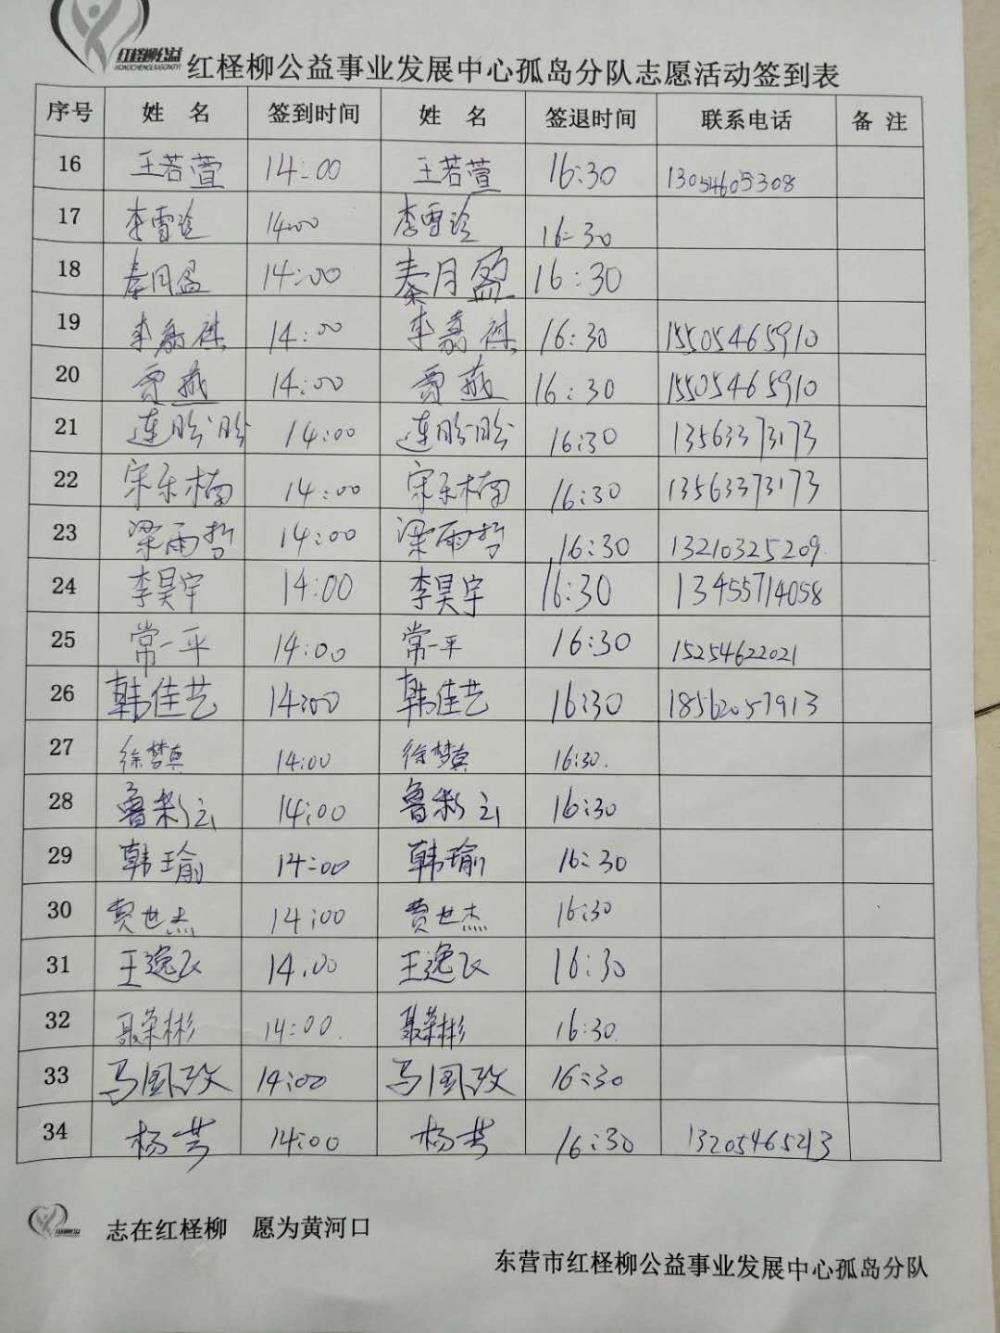 红柽柳公益
红柽柳公益事业发展中心孤岛分队志愿活动签到表
序号 姓 名 签到时间 姓 名 签退时间 联系电话 备 注
16 王若萱 14:00 王若萱 16:30 13054605308
17 李雪珍 14:00 李雪珍 16:30
18 秦月盈 14:00 秦月盈 16:30
19 李嘉祺 14:00 李嘉祺 16:30 15505465910
20 贾燕 14:00 贾燕 16:30 15505465910
21 连盼盼 14:00 连盼盼 16:30 13563373173
22 宋乐楠 14:00 宋乐楠 16:30 13563373173
23 梁雨哲 14:00 梁雨哲 16:30 13210325209
24 李昊宇 14:00 李昊宇 16:30 13455714058
25 常一平 14:00 常一平 16:30 15254622021
26 韩佳艺 14:00 韩佳艺 16:30 18562057913
27 徐梦真 14:00 徐梦真 16:30.
28 鲁彩云 14:00 鲁彩云 16:30
29 韩瑜 14:00 韩瑜 16:30
30 贾世杰 14:00 贾世杰 16:30
31 王逸飞 14:00 王逸飞 16:30
32 聂荣彬 14:00. 聂荣彬 16:30.
33 马国政 14:00 马国政 16:30
34 杨芸 14:00 杨芸 16:30 13205465213
志在红柽柳 愿为黄河口
东营市红柽柳公益事业发展中心孤岛分队